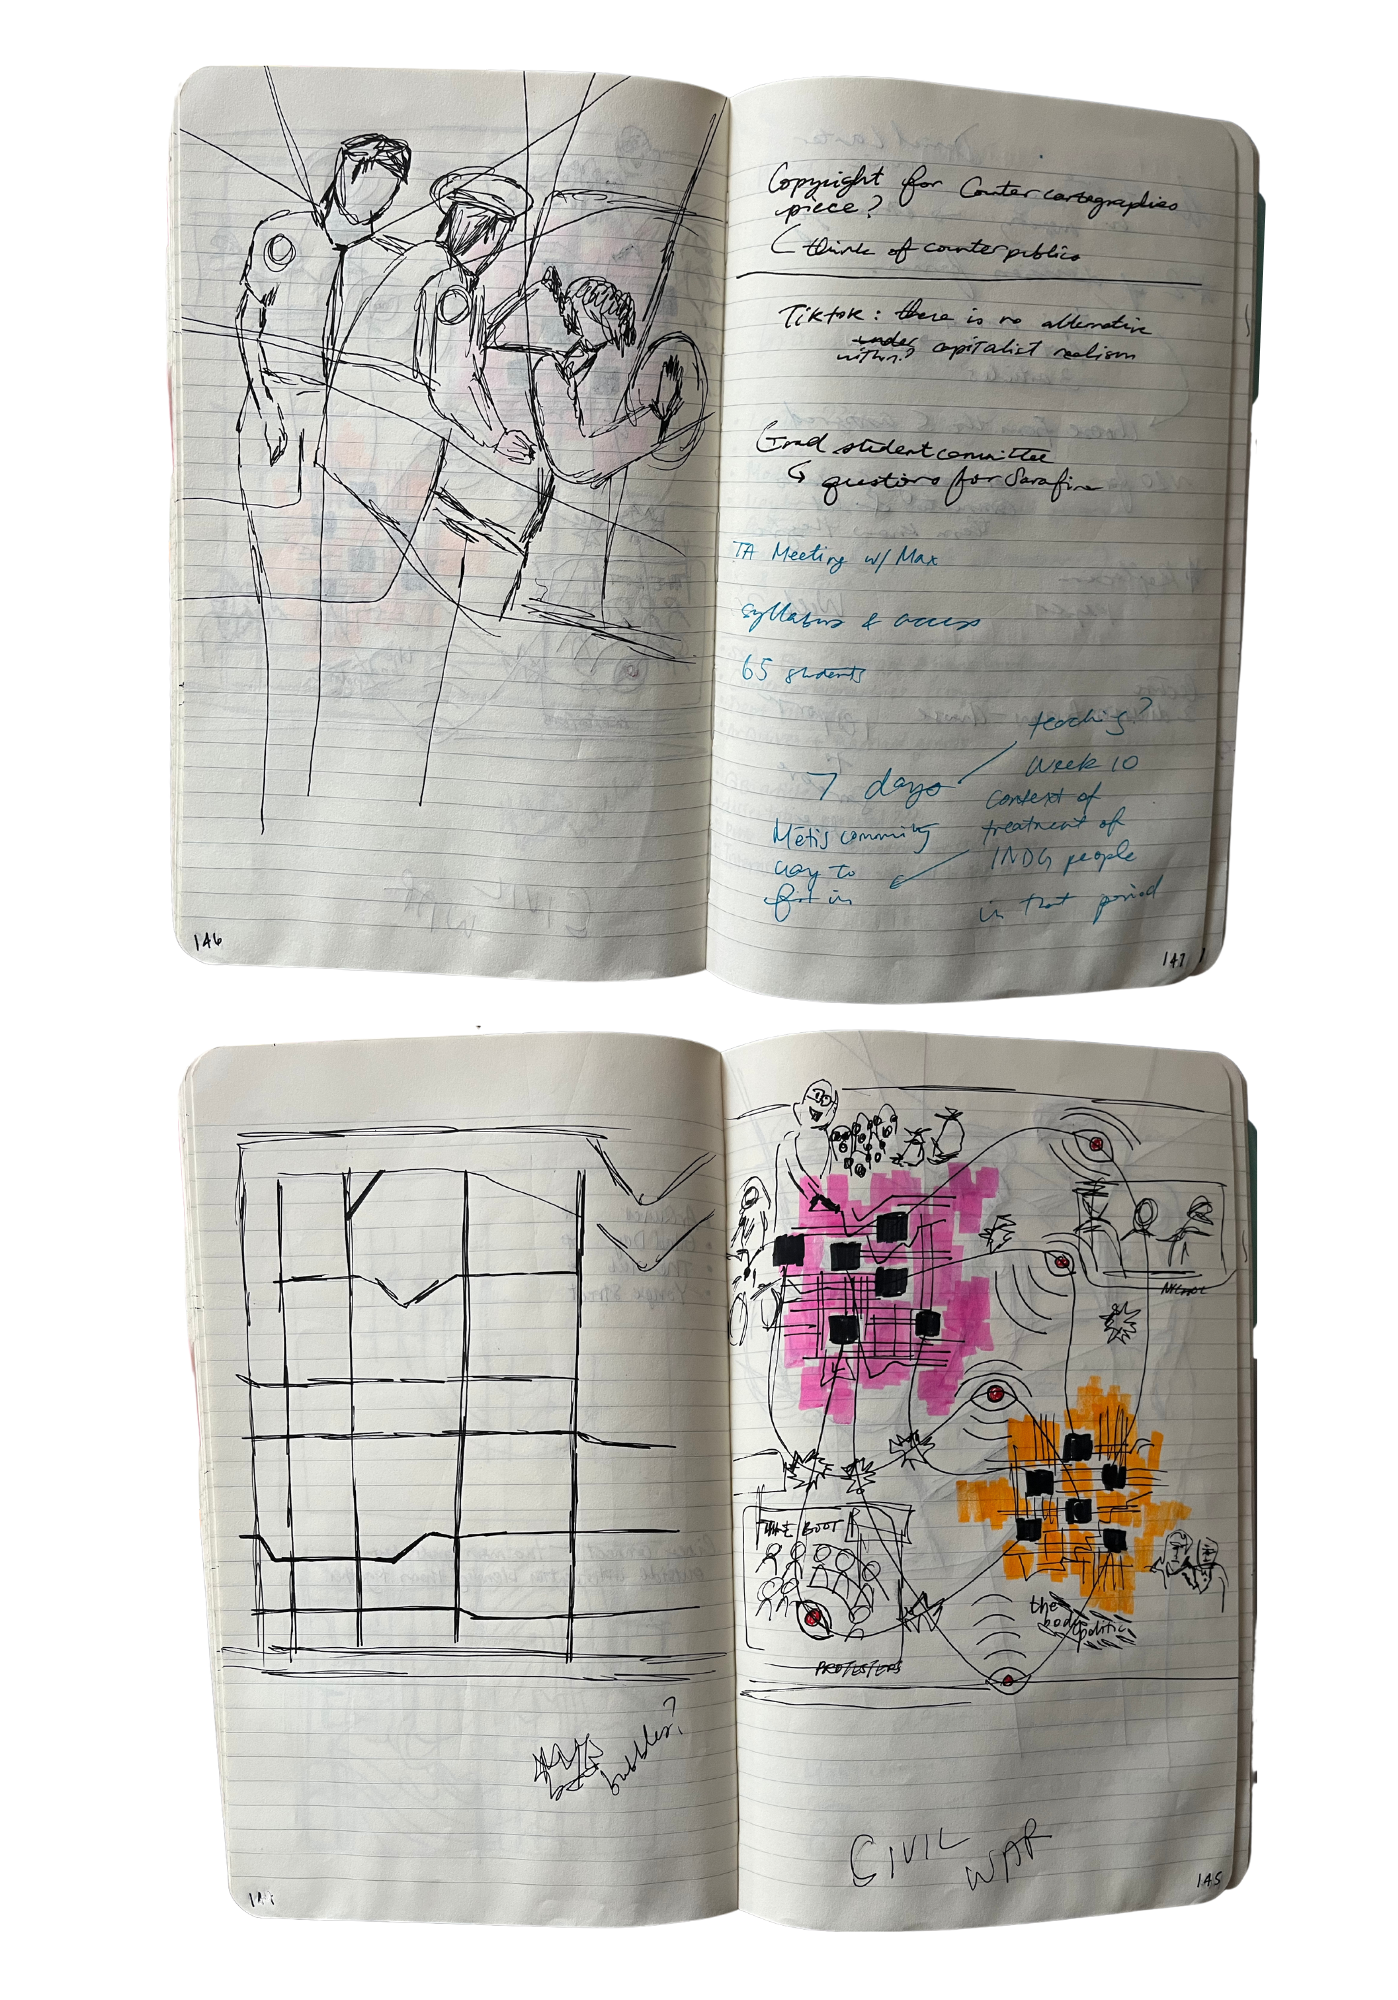 Copyright for Counter cartographies
piece?
think of counterpublics
TikTok: there is no alternative
under capitalist realism
within?
Grad student committee
questions for Sarafina
TA Meeting w/ Max
syllabus & access
65 students
teaching?
7 days
Week 10
context of
treatment of
INDG people
in that period
Métis community
way to
146
147
THE BOOT
the
body
politic
PROTESTERS
bubbles?
CIVIL
WAR
145